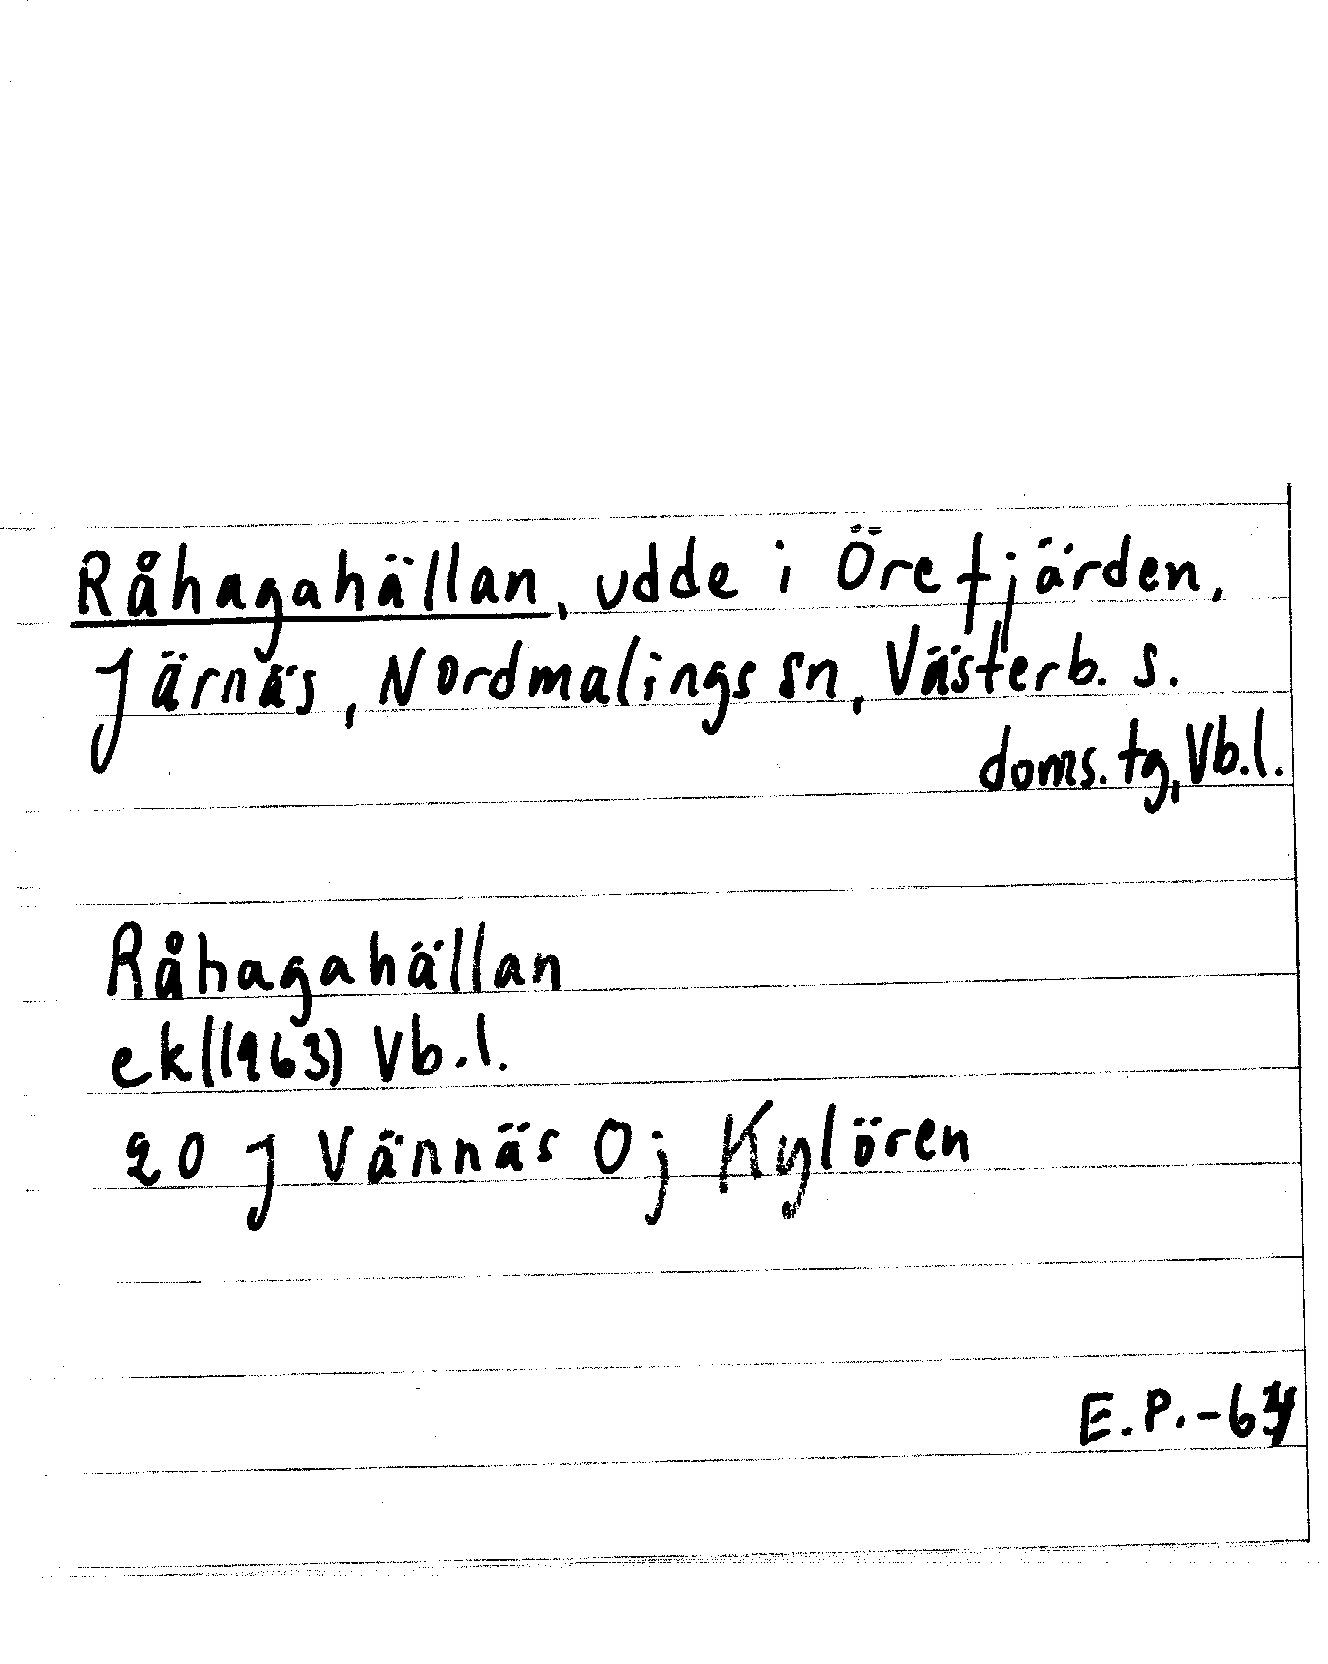 Råhagahällan, udde i Örefjärden,
Järnäs, Nordmalings sn, Västerb. s.
doms. tg, Vb.l.
Råhagahällan
ekl(1963) Vb.l.
20 J Vännäs Oj Kylören
E.P.-64